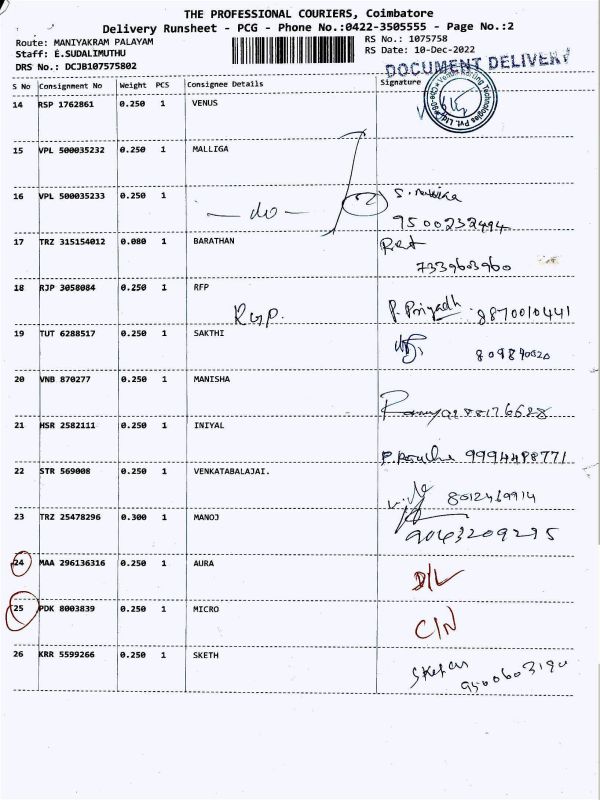 THE PROFESSIONAL COURIERS, Coimbatore
Delivery Runsheet - PCG - Phone No.:0422-3505555 - Page No.:2
Route: MANIYAKRAM PALAYAM RS No.: 1075758
Staff: E.SUDALIMUTHU RS Date: 10-Dec-2022
DRS No.: DCJB107575802 DOCUMENT DELIVERY
S No Consignment No Weight PCS Consignee Details Signature
14 RSP 1762861 0.250 1 VENUS
15 VPL 500035232 0.250 1 MALLIGA
16 VPL 500035233 0.250 1 S.
— do — 9500232494
17 TRZ 315154012 0.080 1 BARATHAN
7339603960
18 RJP 3058084 0.250 1 RFP
P. Priyadh 8870010441
19 TUT 6288517 0.250 1 SAKTHI
20 VNB 870277 0.250 1 MANISHA
21 HSR 2582111 0.250 1 INIYAL
9994498771
22 STR 569008 0.250 1 VENKATABALAJAI.
8012469914
23 TRZ 25478296 0.300 1 MANOJ
9043209295
24 MAA 296136316 0.250 1 AURA
D/L
25 PDK 8003839 0.250 1 MICRO
C/N
26 KRR 5599266 0.250 1 SKETH